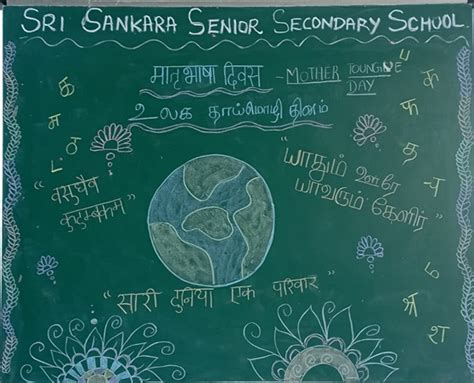 SRI SANKARA SENIOR SECONDARY SCHOOL
मातृभाषा दिवस - MOTHER TOUNGUE
DAY
உலக தாய்மொழி தினம்
"वसुधैव
कुटुम्बकम"
"யாதும் ஊரே
யாவரும் கேளிர்"
"सारी दुनिया एक परिवार"